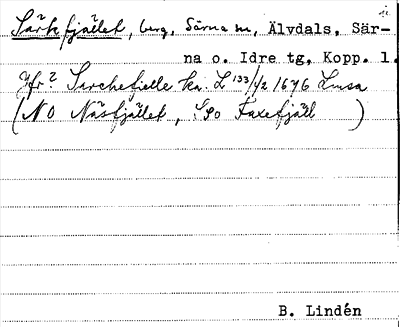 Särkfjället, berg, Särna sn, Älvdals, Sär-
na o. Idre tg, Kopp. l.
Jfr? Särchefielle ka. L 133/1/2 1676 Lmsa
(NO Näsfjället, SO Faxefjäll )
B. Lindén